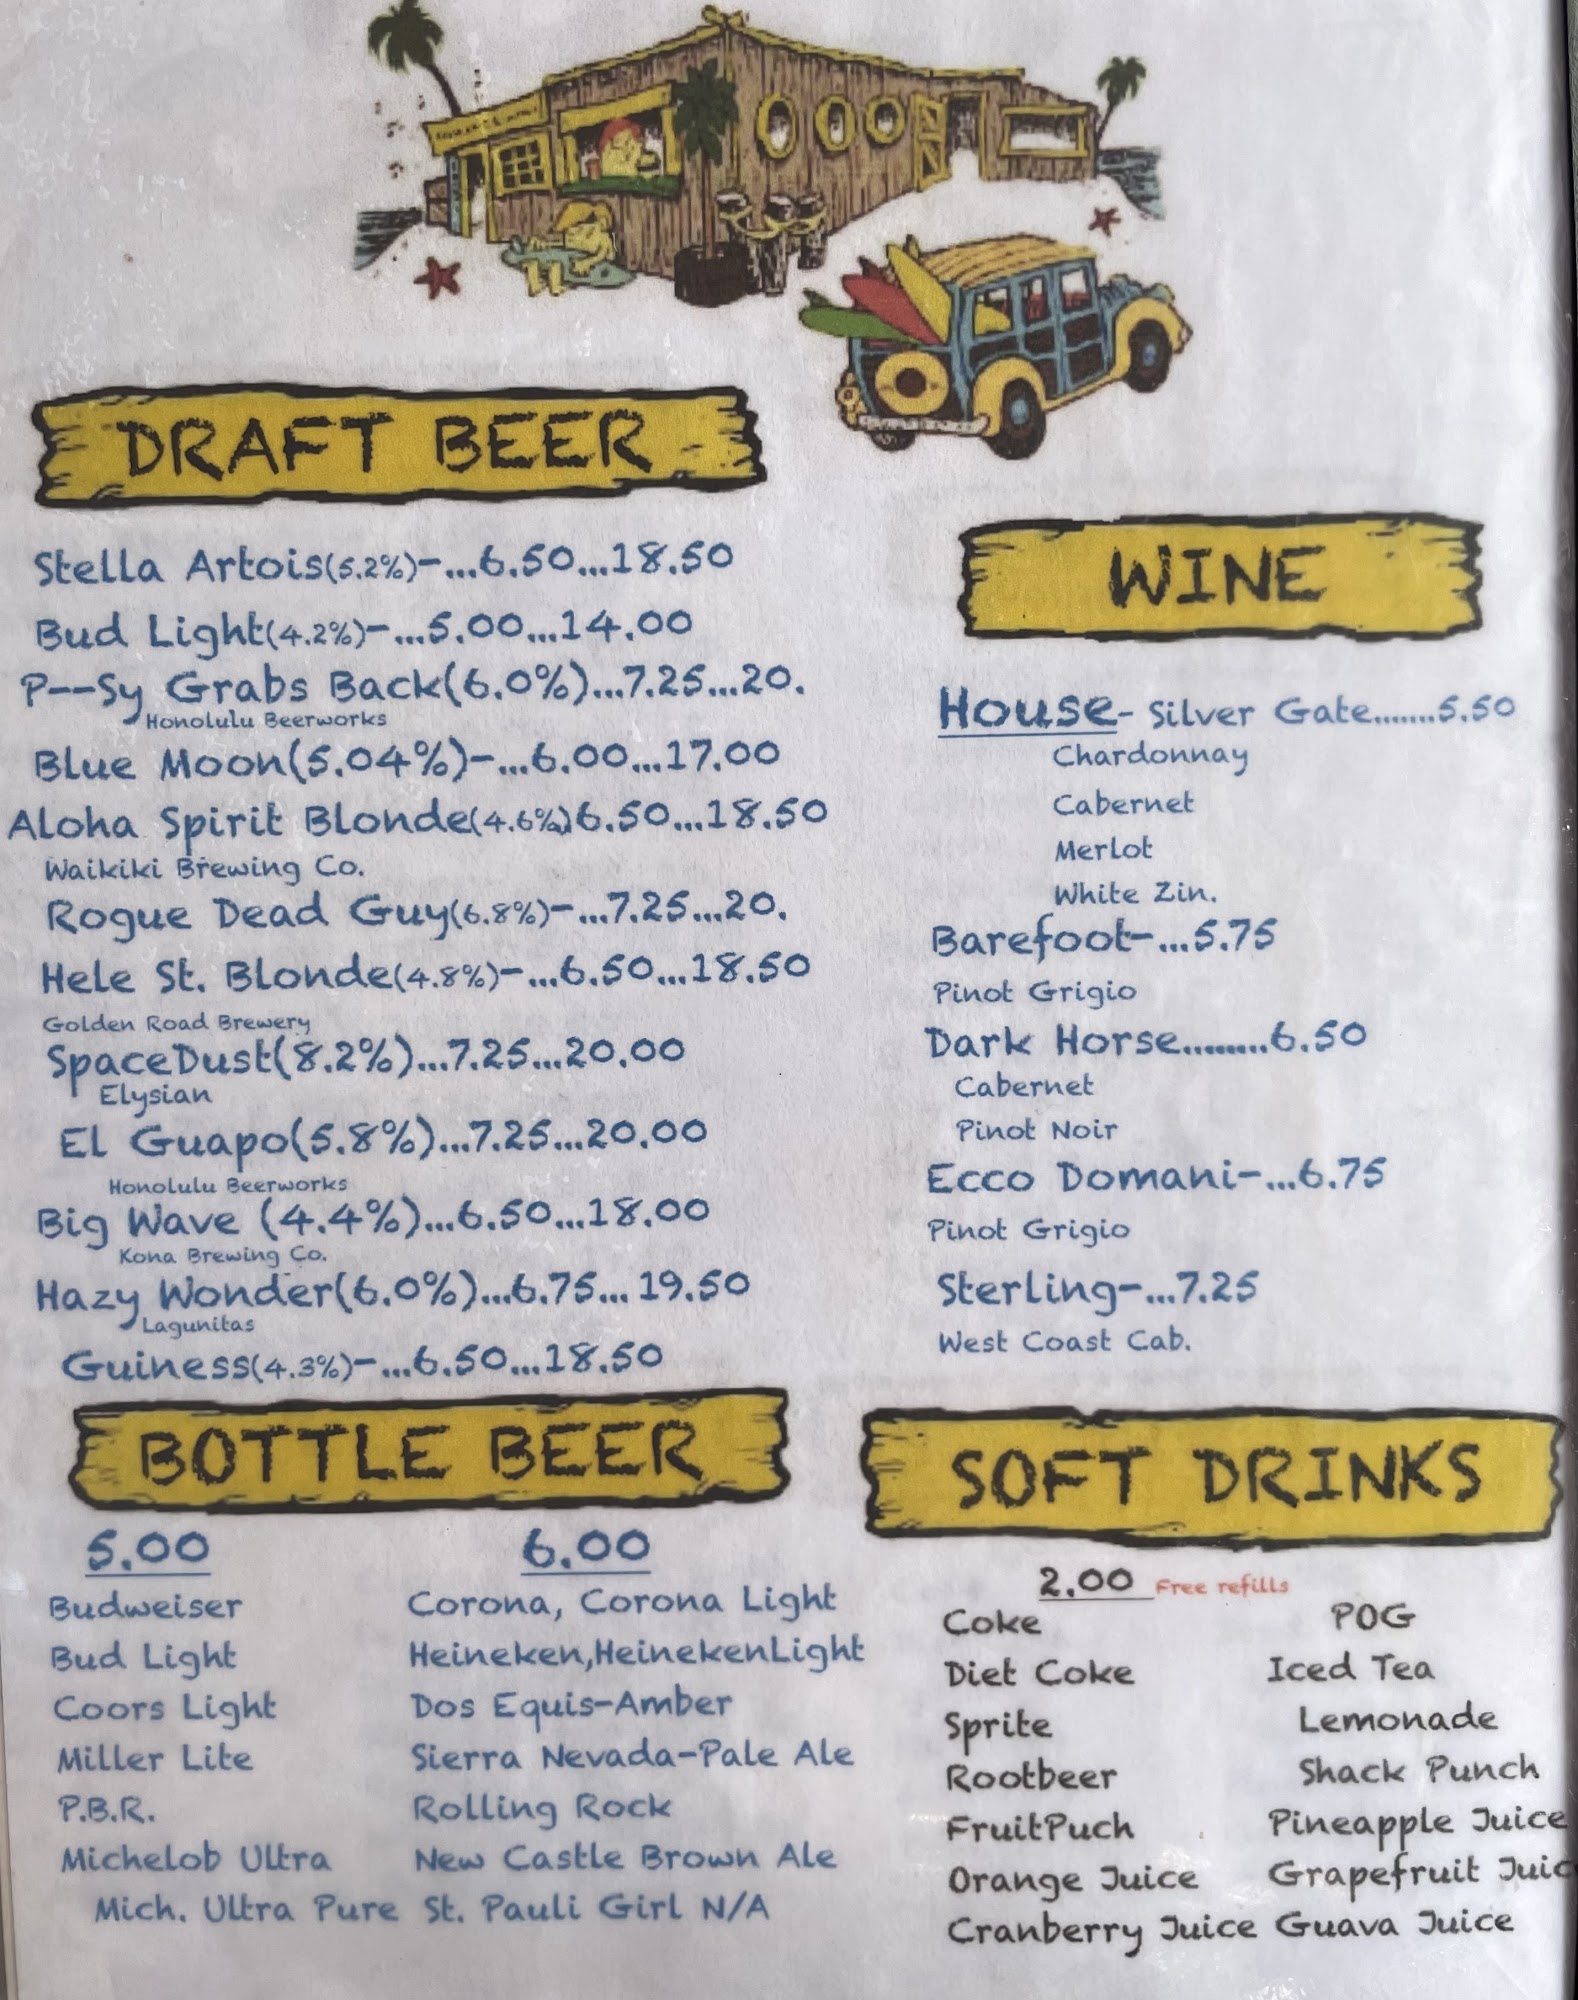 DRAFT BEER
Stella Artois(5.2%)-...6.50...18.50
Bud Light(4.2%)-...5.00...14.00
P--Sy Grabs Back(6.0%)...7.25...20.
Honolulu Beerworks
Blue Moon(5.04%)-...6.00...17.00
Aloha Spirit Blonde(4.6%)6.50...18.50
Waikiki Brewing Co.
Rogue Dead Guy(6.8%)-...7.25...20.
Hele St. Blonde(4.8%)-...6.50...18.50
Golden Road Brewery
SpaceDust(8.2%)...7.25...20.00
Elysian
El Guapo(5.8%)...7.25...20.00
Honolulu Beerworks
Big Wave (4.4%)...6.50...18.00
Kona Brewing Co.
Hazy Wonder(6.0%)...6.75... 19.50
Lagunitas
Guiness(4.3%)-...6.50...18.50
WINE
House- Silver Gate.......5.50
Chardonnay
Cabernet
Merlot
White Zin.
Barefoot-...5.75
Pinot Grigio
Dark Horse........6.50
Cabernet
Pinot Noir
Ecco Domani-...6.75
Pinot Grigio
Sterling-...7.25
West Coast Cab.
BOTTLE BEER
5.00
Budweiser
Bud Light
Coors Light
Miller Lite
P.B.R.
Michelob Ultra
Mich. Ultra Pure
6.00
Corona, Corona Light
Heineken,HeinekenLight
Dos Equis-Amber
Sierra Nevada-Pale Ale
Rolling Rock
New Castle Brown Ale
St. Pauli Girl N/A
SOFT DRINKS
2.00 Free refills
Coke
Diet Coke
Sprite
Rootbeer
FruitPuch
Orange Juice
Cranberry Juice
POG
Iced Tea
Lemonade
Shack Punch
Pineapple Juice
Grapefruit Juic
Guava Juice